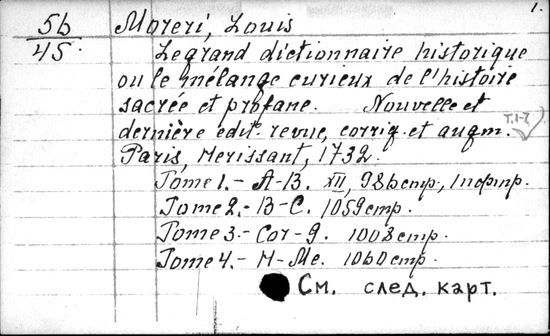 1.
56 Moreri, Louis
45. Le grand dictionnaire historique
ou le mélange curieux de l'histoire
sacrée et profane. Nouvelle et
dernière edit. revue, corrig. et augm. т.1-7
Paris, Merissant, 1732.
Tome 1. - A-B. XII, 986 стр., 1 портр.
Tome 2. - B-C. 1059 стр.
Tome 3. - Cor-G. 1008 стр.
Tome 4. - H-Me. 1060 стр.
См. след. карт.